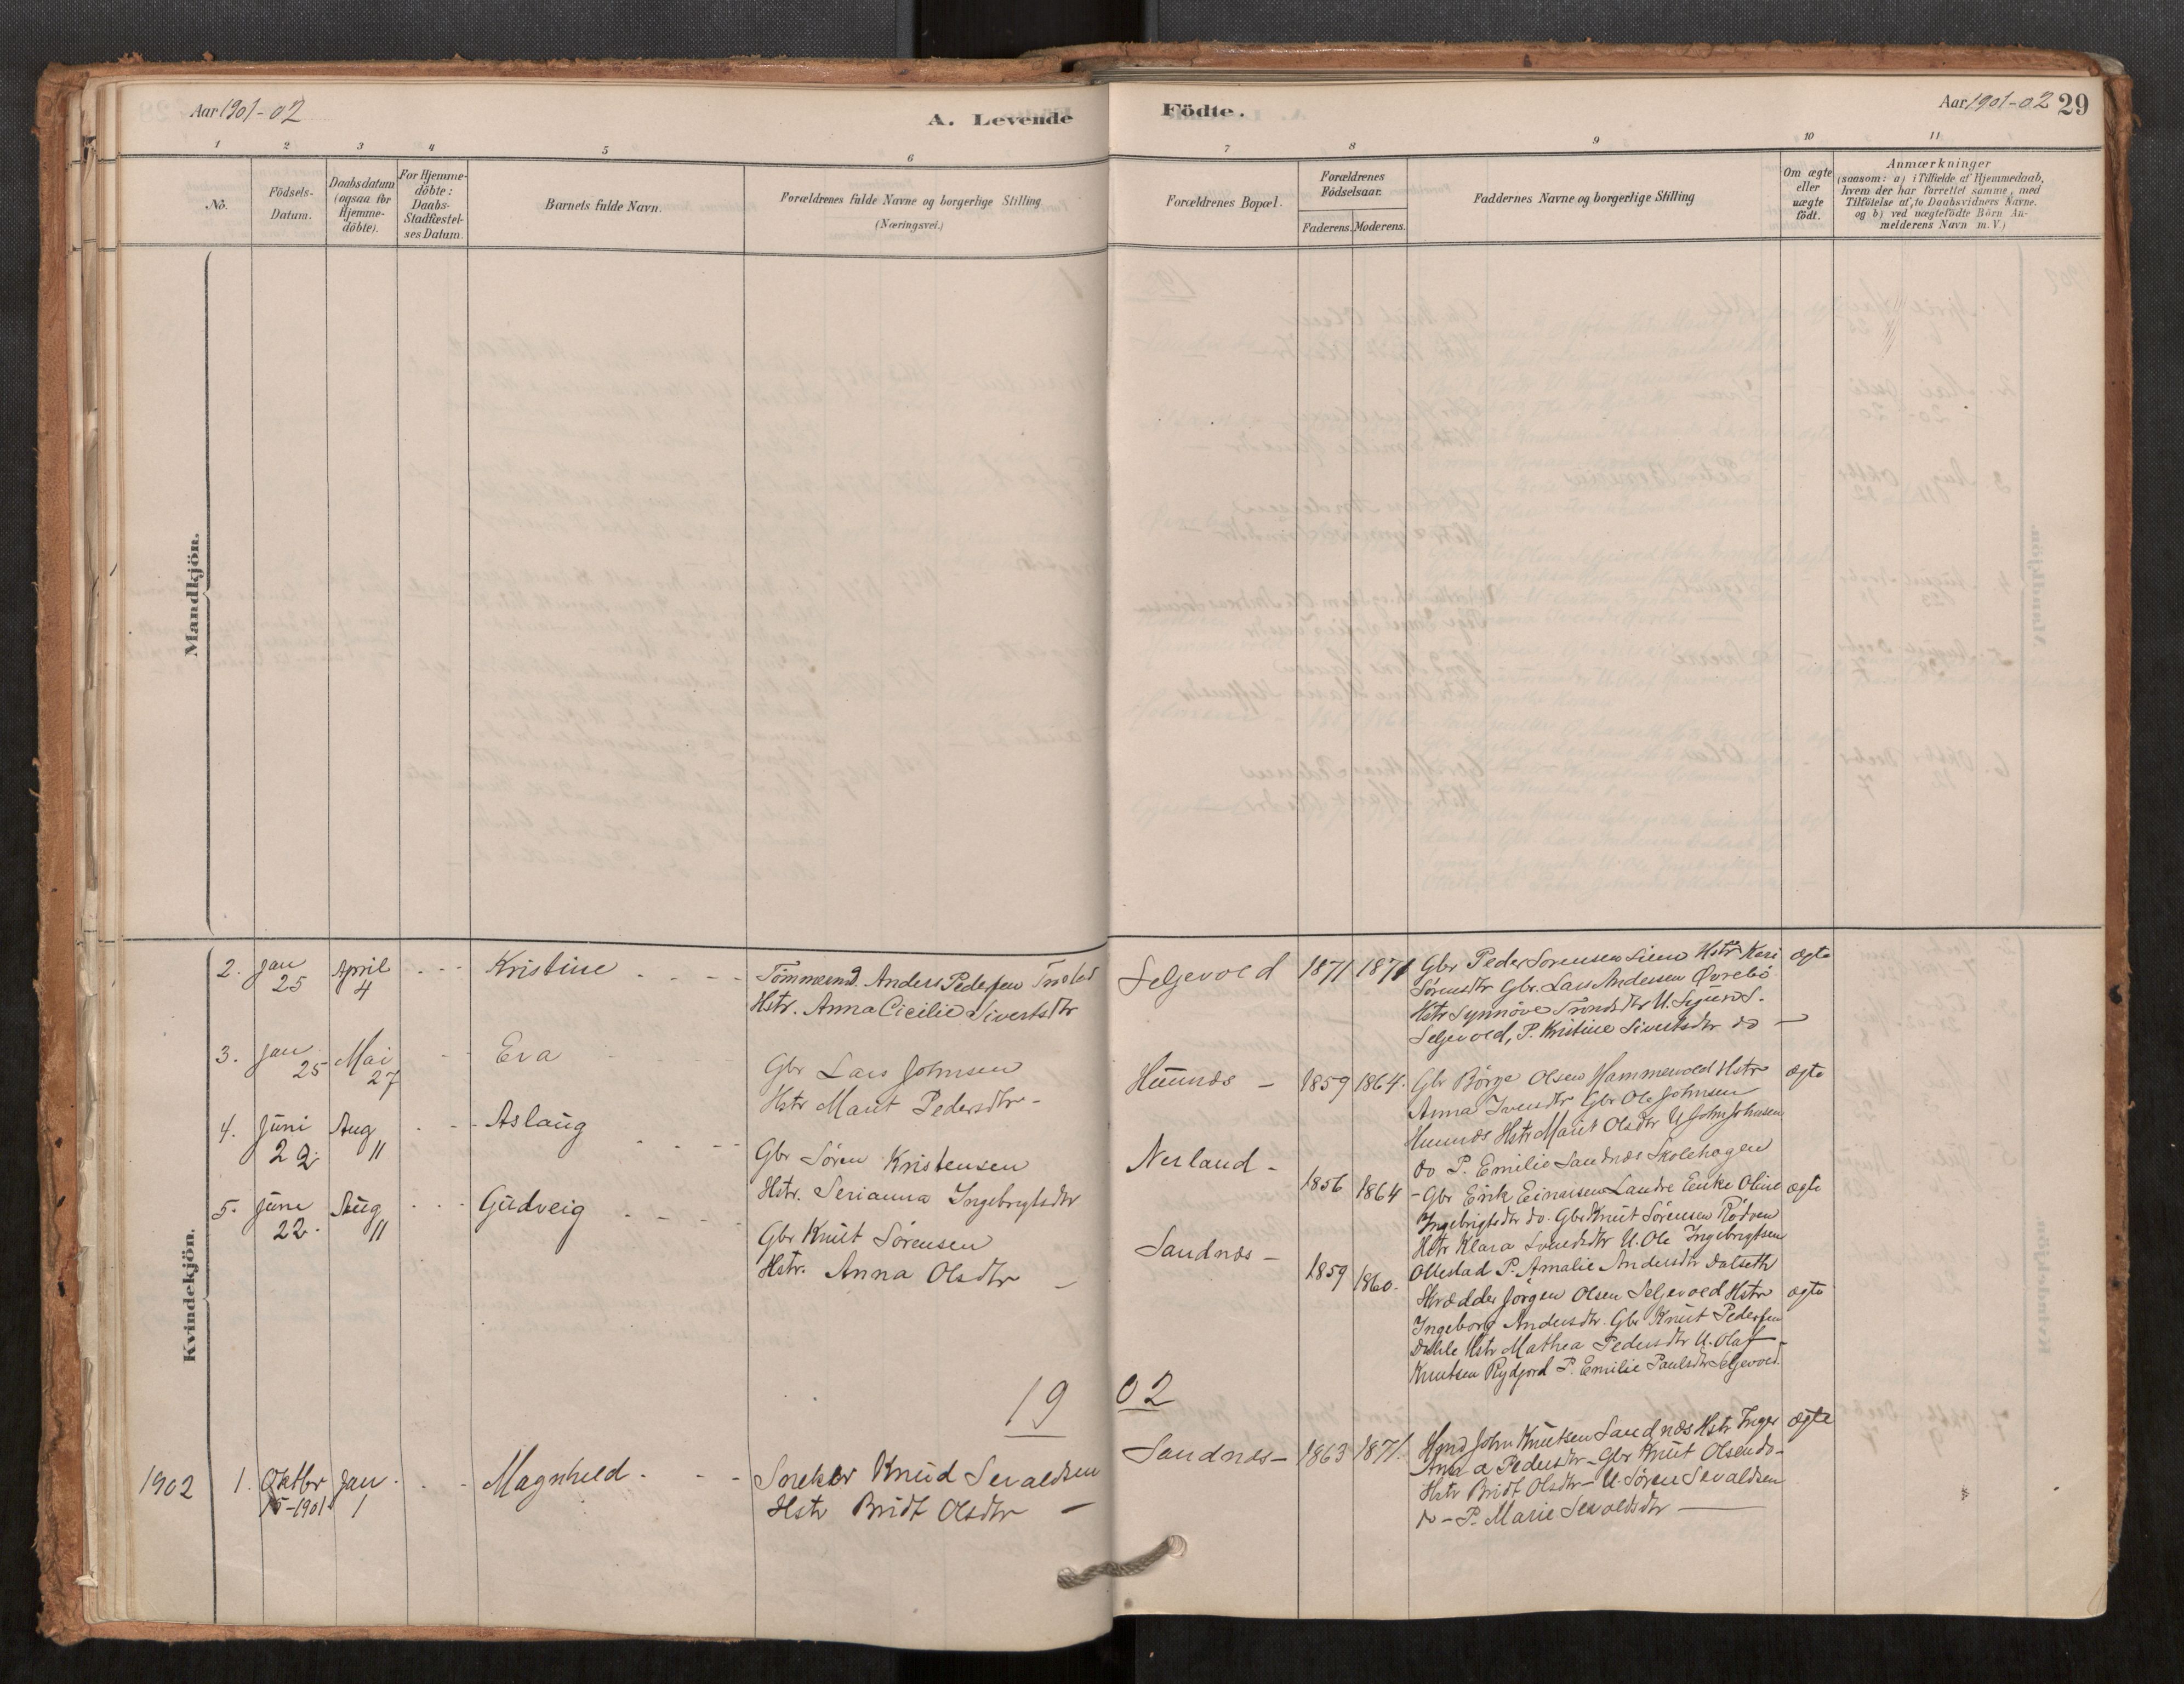 Aar 1901-02
A. Levende
Födte.
Aar 1901-02 29
1 2 3 4 5 6 7 8 9 10 11
No.
Födsels-
Datum.
Daabsdatum
(ogsaa for
Hjemme-
döbte).
For Hjemme-
döbte:
Daabs-
Stadfæstel-
ses Datum.
Barnets fulde Navn.
Forældrenes fulde Navne og borgerlige Stilling
(Næringsvei.)
Forældrenes Bopæl.
Forældrenes
Födselsaar.
Faderens. Moderens.
Faddernes Navne og borgerlige Stilling
Om ægte
eller
uægte
födt.
Anmærkninger
(saasom: a) i Tilfælde af Hjemmedaab,
hvem der har forrettet samme, med
Tilföielse af to Daabsvidners Navne.
og b) ved uægtefödte Börn An-
melderens Navn m.V.)
Mandkjön.
Kvindekjön.
2. Jan 25 April 4 - - - Kristine - - - -
Tömmermd. Anders Pedersen
Hstr. Anna Cicilie Sivertsdtr
Seljevold 1871 1871
Gbr Peder Sorensen Lien Hstr Kari
Sörensdtr Gbr. Lars Andersen Övrebö
Hstr Synnöve Trondsdtr U. Sigurd S.
Seljevold, P. Kristine Sivertsdtr do -
ægte
3. Jan 25 Mai 27 - - Eva
Gbr Lars Johnsen
Hstr Marit Pedersdtr -
Hunnds - 1859 1864.
Gbr Börge Olsen Hammervold Hstr
Anna Iversdtr Gbr Ole Johnsen
Hunnds Hstr Marit Olsdtr U John Johnsen
do P. Emilie Sandnæs Skolehagen
ægte
4. Juni 22 Aug 11 - - - Aslaug - - - -
Gbr Sören Kristensen
Hstr. Serianna Ingebrigtsdtr
Nerland - 1856 1864
- Gbr Erik Einarsen Landre Enke Oline
Ingebrigtsdtr do. Gbr Knut Sörensen Rödven
Hstr Klara Svendsdtr U. Ole Ingebrigtsen
Ollestad P. Amalie Andersdtr Dalseth
ægte
5. Juni 22. Aug 11 - - - Gudveig - - - -
Gbr Knut Sörensen
Hstr. Anna Olsdtr -
Sandnæs - 1859 1860.
Skrædder Jörgen Olsen Seljevold Hstr
Ingeborg Andersdtr. Gbr Knut Pedersen
Dahle Hstr Mathea Pedersdtr U. Olaf
Knutsen Rydjord P. Emilie Paulsdtr Seljevold.
ægte
19 02
1902 1. Oktbr 15-1901 Jan 1 - - - Magnhild - - -
Snekker Knud Sevaldsen
Hstr Bridt Olsdtr -
Sandnæs - 1863 1871.
Hmd John Knutsen Sandnæs Hstr Inger
Anna Pedersdtr - Gbr Knut Olsen do -
Hstr Bridt Olsdtr - U. Sören Sevaldsen
do - P. Marie Sevaldsdtr -
ægte